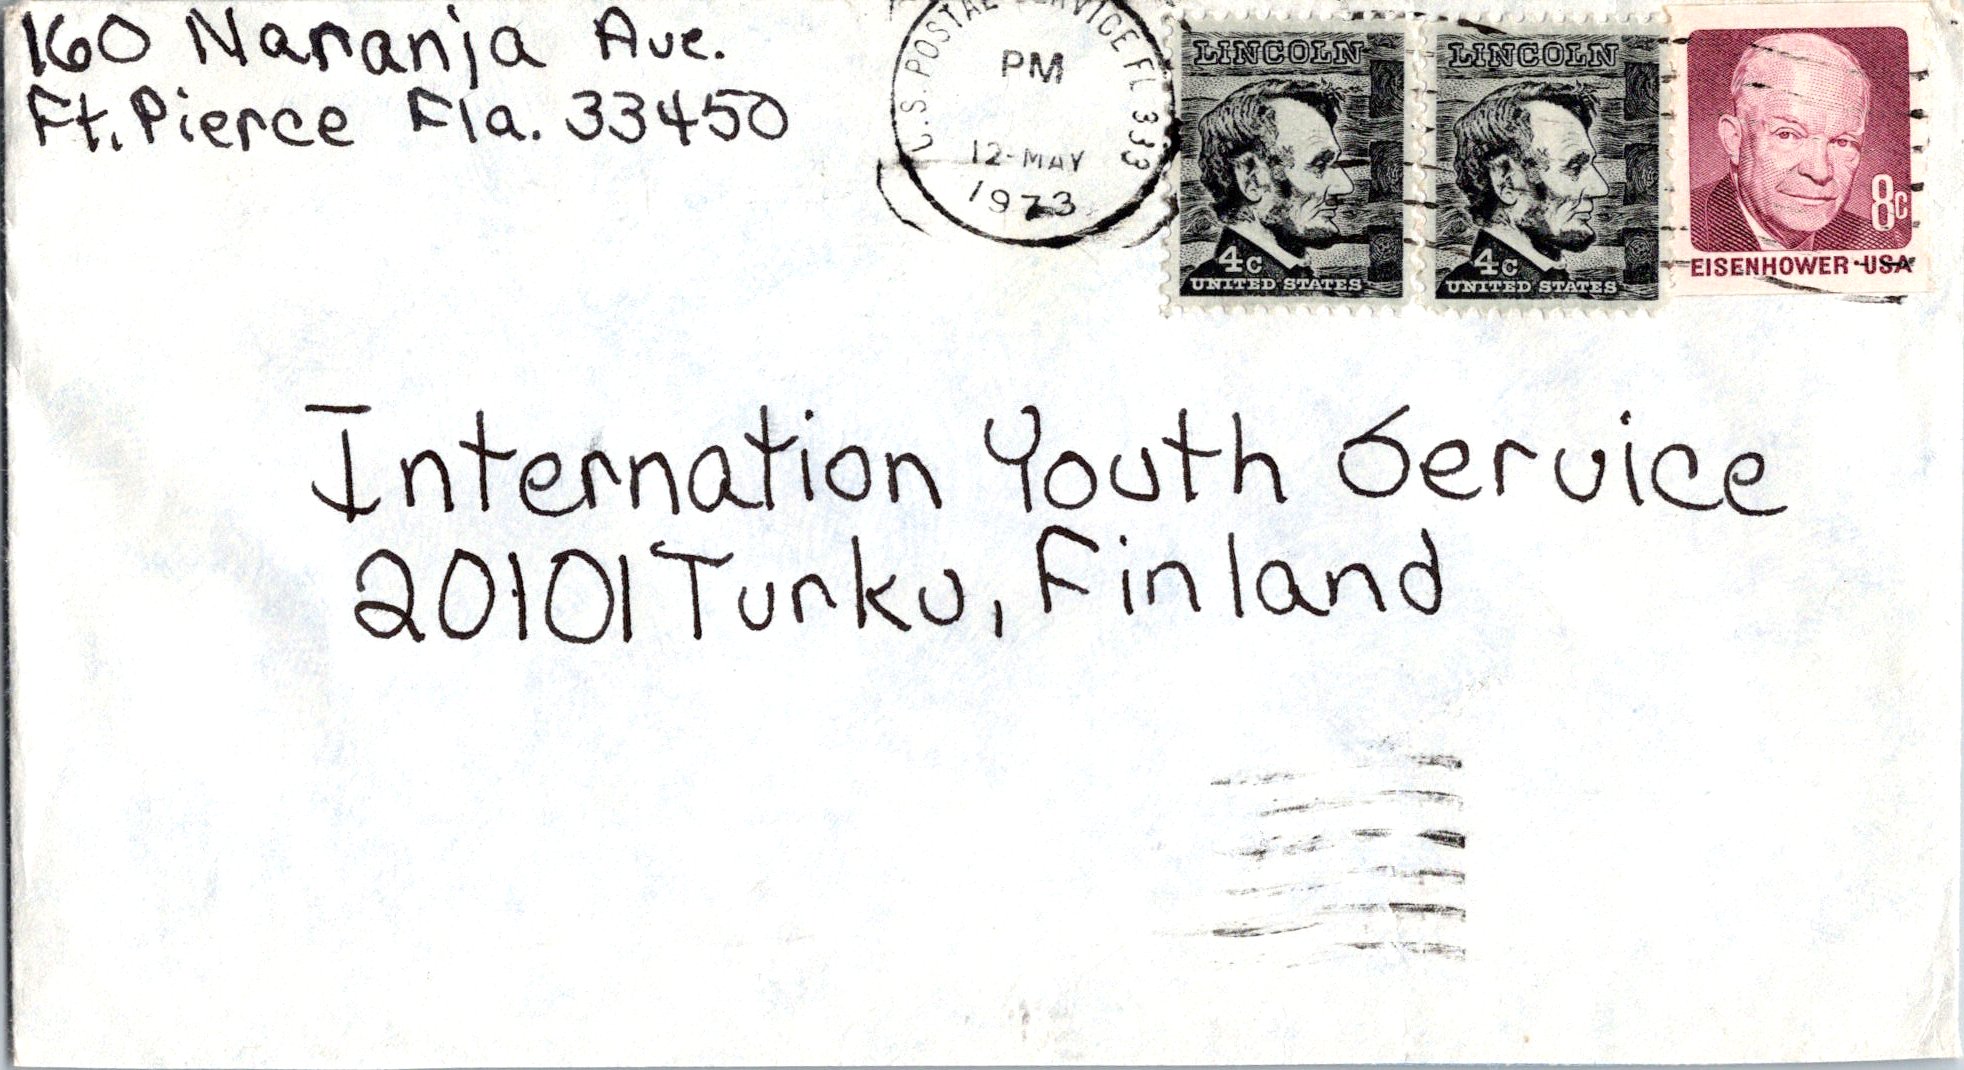 160 Naranja Ave.
Ft. Pierce Fla. 33450
U.S. POSTAL SERVICE FL 333
PM
12-MAY
1973
LINCOLN
4c
UNITED STATES
LINCOLN
4c
UNITED STATES
8c
EISENHOWER·USA
Internation Youth Service
20101 Turku, Finland